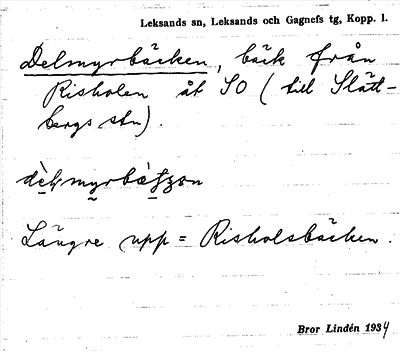 Leksands sn, Leksands och Gagnefs tg, Kopp. l.
Delmyrbäcken, bäck från
Risholen åt SO (till Slätt-
bergs stn).
Längre upp = Risholsbäcken.
Bror Lindén 1934